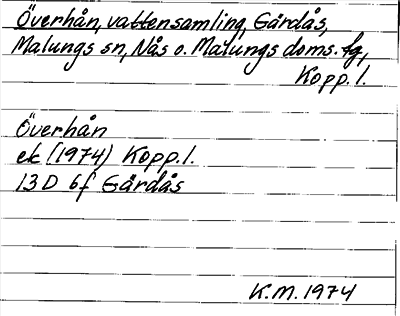 Överhån, vattensamling, Gärdås,
Malungs sn, Nås o. Malungs doms. fg,
Kopp. l.
Överhån
ek (1974) Kopp. l.
13 D 6f Gärdås
K.M. 1974